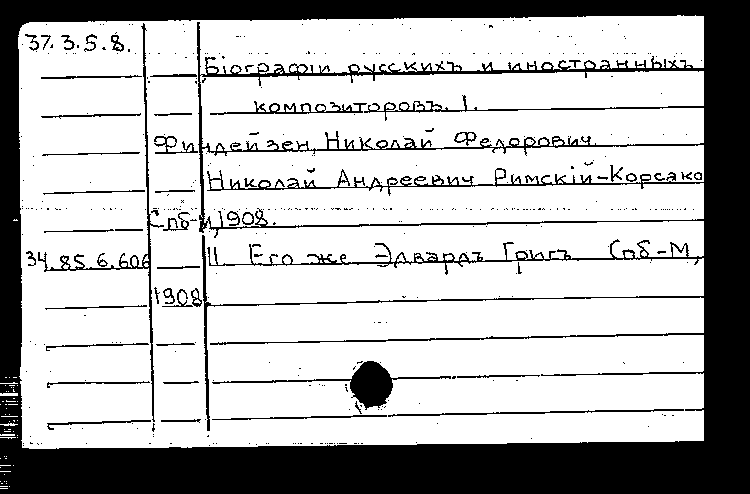 37.3.5.8.
Біографіи русскихъ и иностранныхъ
композиторовъ. I.
Финдейзен, Николай Федорович.
Николай Андреевич Римскій-Корсако
Спб-М, 1908.
34.85.6.606 II. Его же Эдвардъ Григъ. Спб-М,
1908.